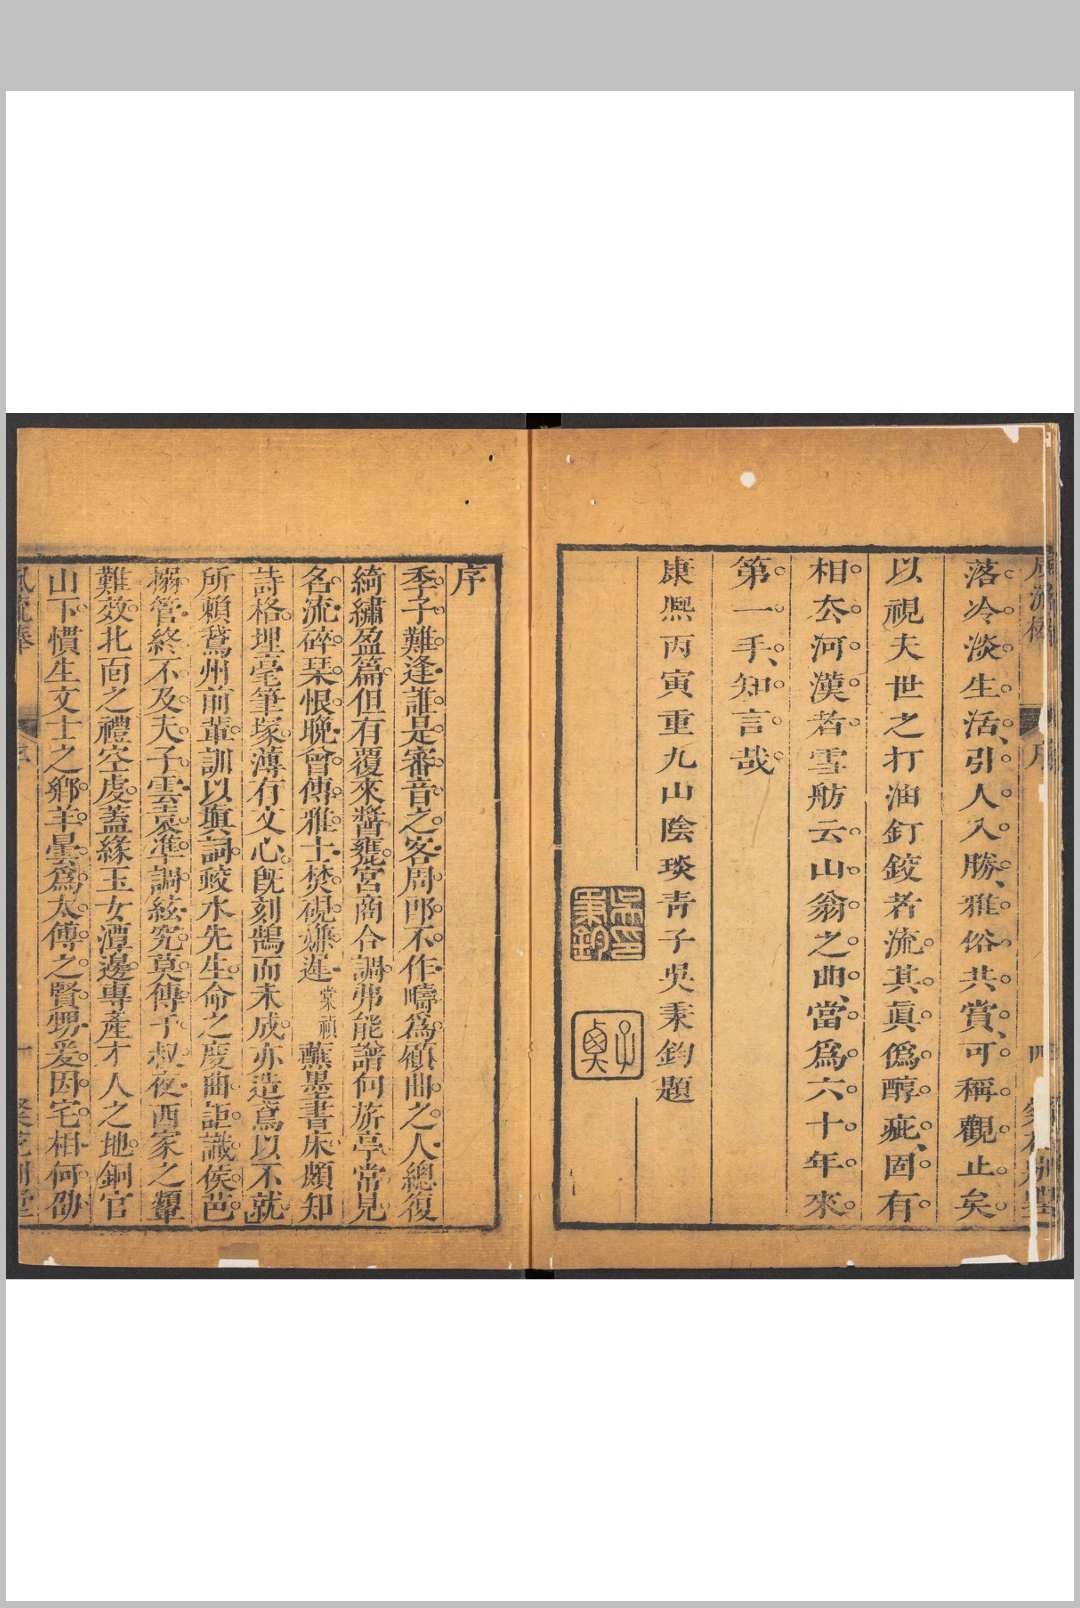 落冷淡生活引人入勝雅俗共賞可稱觀止矣
以視夫世之打油釘鉸者流其眞僞醇疵固有
相去河漢者雪舫云山翁之曲當爲六十年來
第一手知言哉
康熙丙寅重九山陰琰青子吳秉鈞題
序
季子難逢誰是審音之客周郎不作疇爲顧曲之人總復
綺繡盈篇但有覆來醬甕宮商合調弗能譜向旂亭常見
名流碎琹恨晚會傳雅士焚硯嫌遲棠禎蘸墨書床頗知
詩格埋毫筆塚薄有文心旣刻鵠而未成亦造鳶以不就
所賴鵞州前輩訓以塡詞蛟水先生命之度曲詎識侯芭
搦管終不及夫子雲袁準調絃究莫傳于叔夜西家之顰
難效北面之禮空虔蓋緣玉女潭邊專產才人之地銅官
山下慣生文士之鄉羊曇爲太傅之賢甥爰因宅相何劭